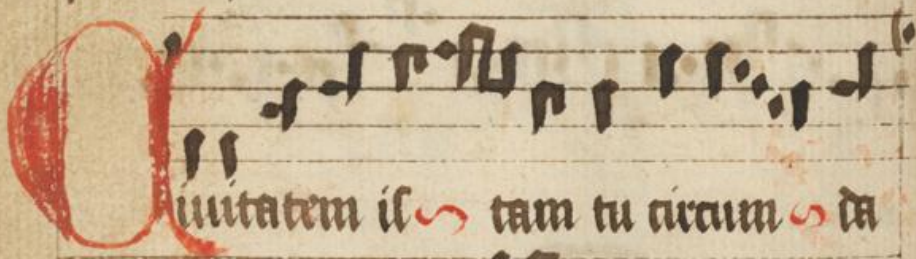 Ciuitatem is tam tu circum da